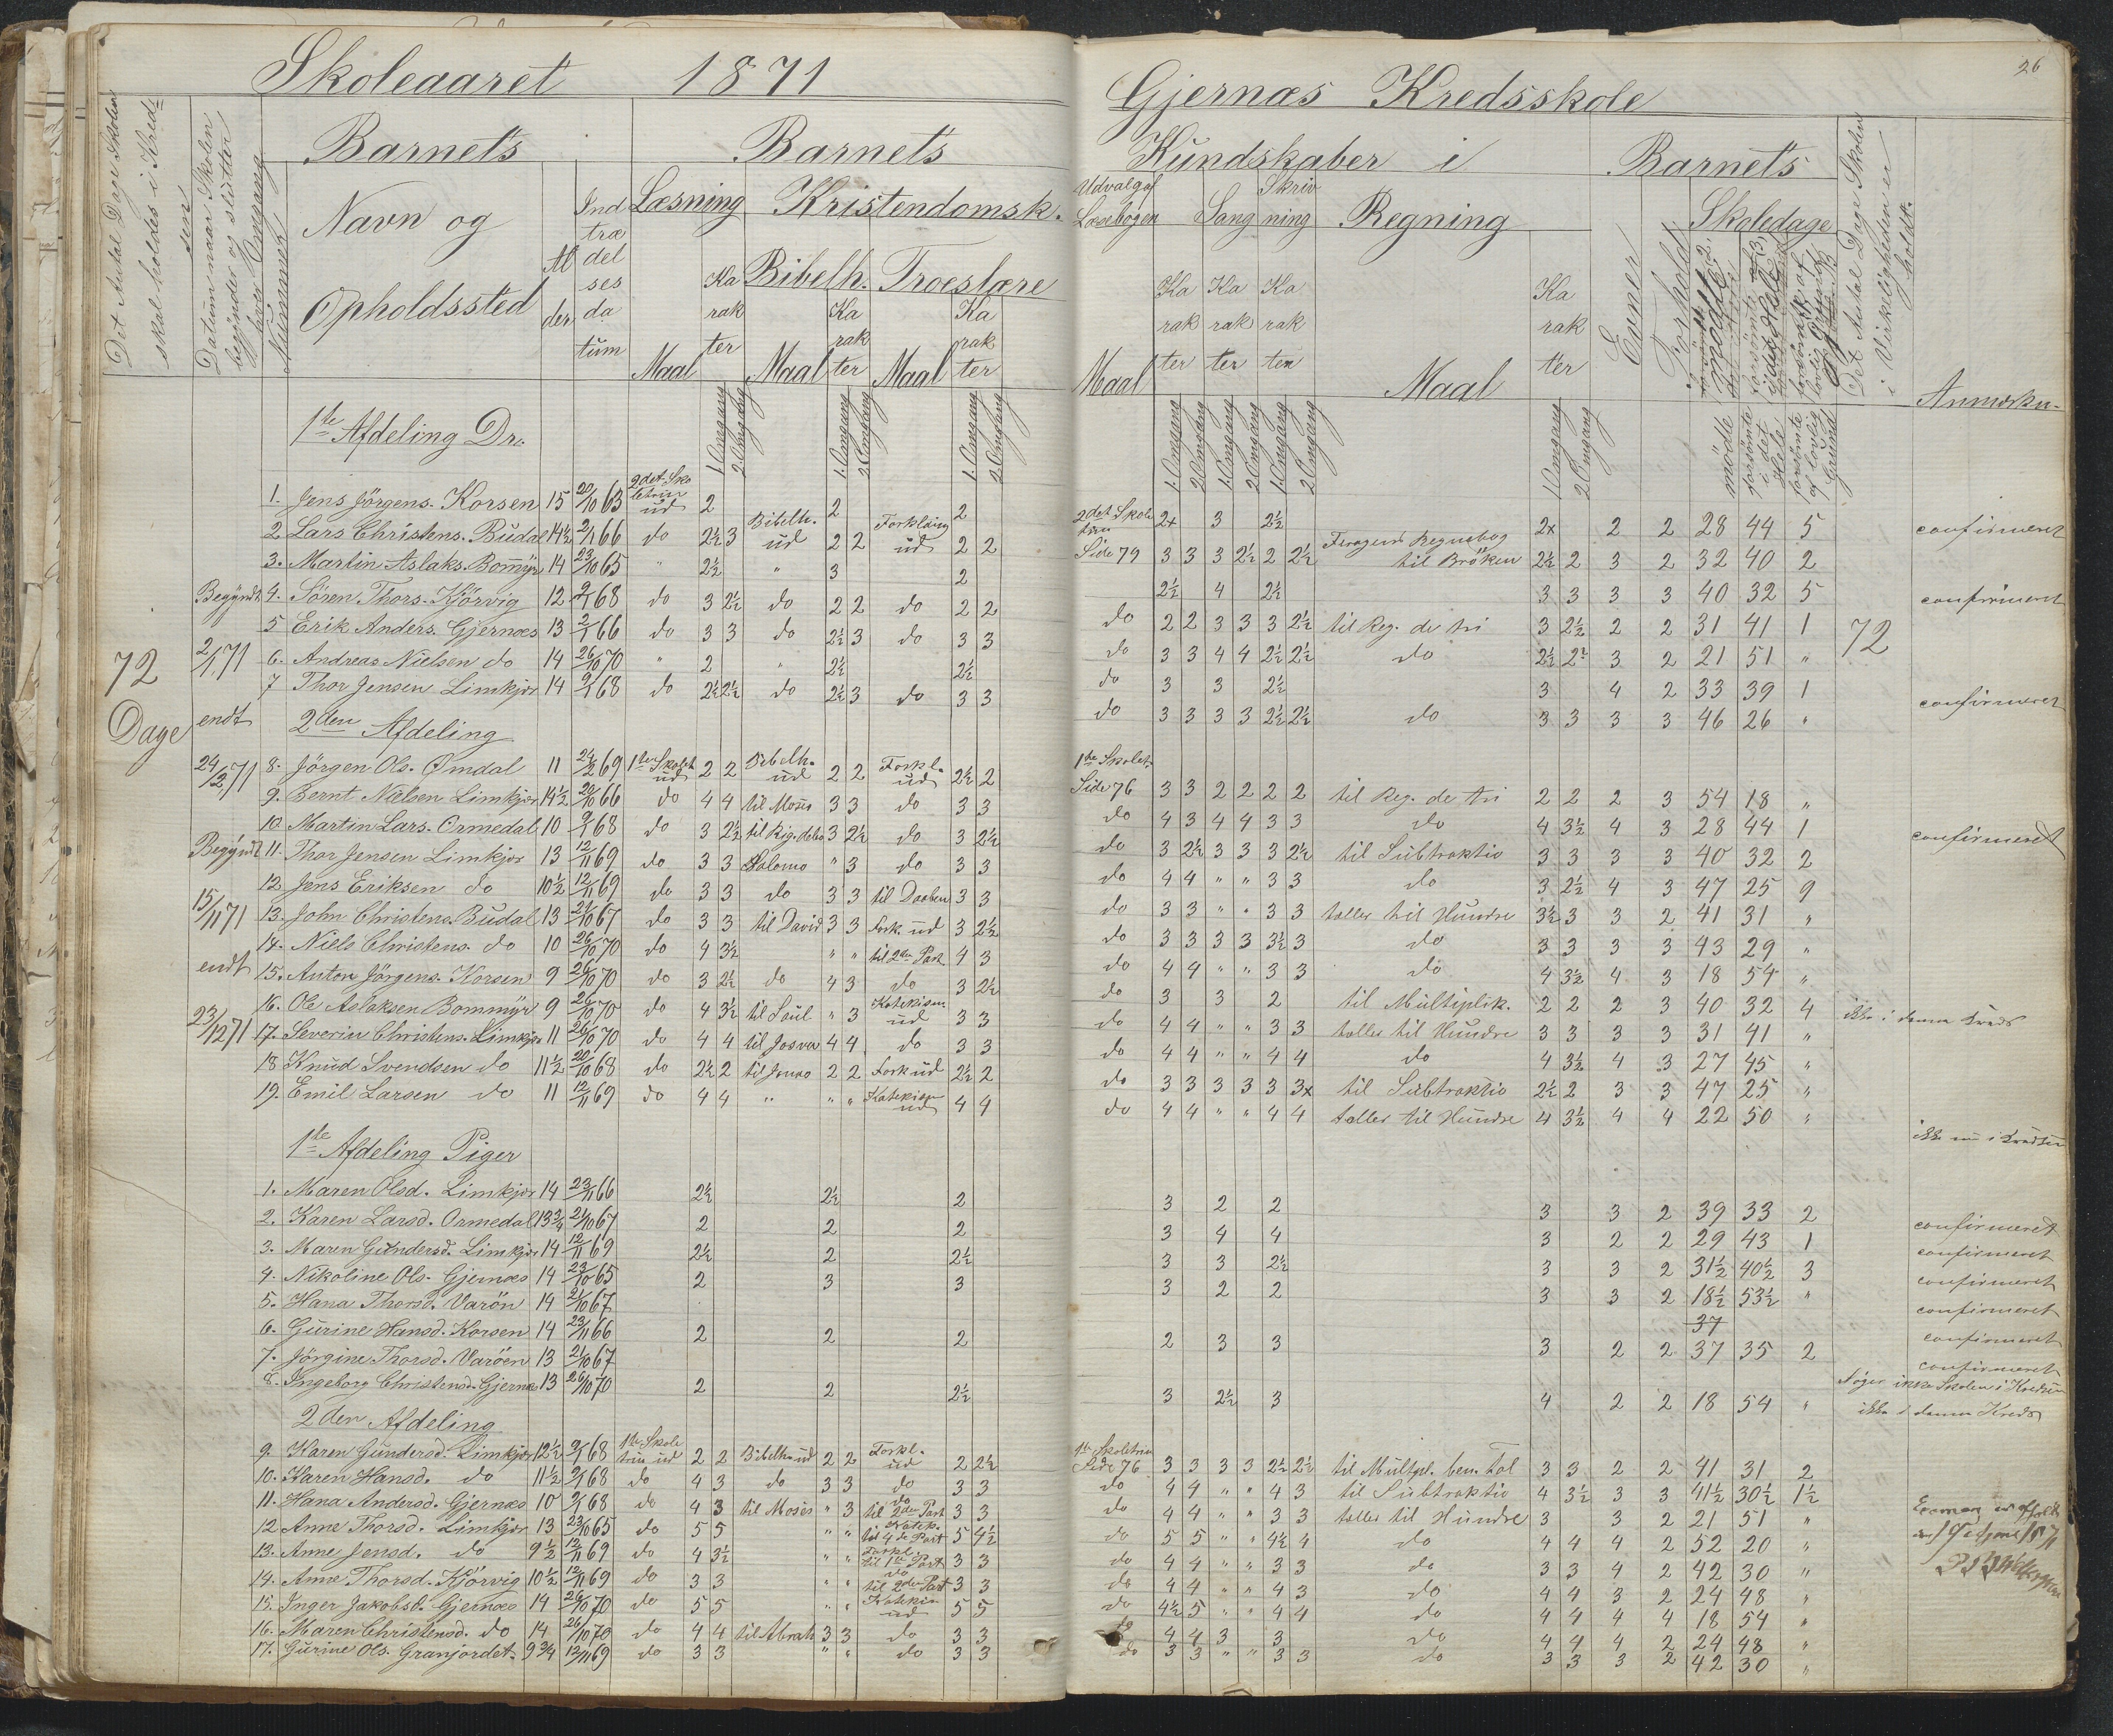 Skoleaaret 1871
Gjernæs Kredsskole
26
Det Antal Dage Skolen skal holdes i Kredsen
Datum naar Skolen begynder og slutter hver Omgang
Nummer
Barnets
Navn og
Opholdssted
Alder
Indtrædelsesdatum
Barnets
Læsning
Kristendomsk.
Bibelh. Troeslære
Maal Karakter Maal Karakter Maal Karakter
1. Omgang 2. Omgang 1. Omgang 2. Omgang 1. Omgang 2. Omgang
Kundskaber i
Udvalg af Læsebogen Sang Skrivning Regning
Maal Karakter Karakter Karakter Maal Karakter
1. Omgang 2. Omgang 1. Omgang 2. Omgang 1. Omgang 2. Omgang 1. Omgang 2. Omgang
Barnets
Evner
Forhold
Skoledage
mödte
forsömte i det Hele
forsömte af lovlig Grund
Det Antal Dage Skolen i Virkeligheden er holdt.
Anmærkn.
72 Dage
Begyndt 2/1 71 endt 24/2 71
Begyndt 15/11 71 endt 23/12 71
72
1ste Afdeling Dr.
1. Jens Jörgens. Korsen 15 20/10 63 2det Skoletrin ud 2 2 2
2det Skoletrin 2x 3 2½ 2x 2 2 28 44 5 confirmeret
2. Lars Christens. Budal 14½ 2/1 66 do 2½ 3 Bibelh. ud 2 2 Forklaring ud 2 2
Side 79 3 3 3 2½ 2 2½ til Bröken 2½ 2 3 2 32 40 2
3. Martin Aslaks. Bommyr 14 23/10 65 " 2½ " 3 2
2½ 4 2½ 3 3 3 3 40 32 5 confirmeret
4. Sören Thors. Kjörvig 12 9/1 68 do 3 2½ do 2 2 do 2 2
do 2 2 3 3 3 2½ til Reg. de tri 3 2½ 2 2 31 41 1
5 Erik Anders. Gjernæs 13 2/1 66 do 3 3 do 2½ 3 do 3 3
do 3 3 4 4 2½ 2½ do 2½ 2½ 3 2 21 51 "
6. Andreas Nielsen do 14 26/10 70 " 2 " 2½ 2½
do 3 3 2½ 3 4 2 33 39 1 confirmeret
7 Thor Jensen Limkjær 14 9/1 68 do 2½ 2½ do 2½ 3 do 3 3
do 3 3 3 3 2½ 2½ do 3 3 3 3 46 26 "
2den Afdeling
8. Jörgen Ols. Omdal 11 24/2 69 1ste Skolet. ud 2 2 Bibelh. ud 2 2 Forkl. ud 2½ 2
1ste Skolet. Side 76 3 3 2 2 2 2 til Reg. de tri 2 2 2 3 54 18 "
9. Bernt Nielsen Limkjær 14½ 20/10 66 do 4 4 til Moses 3 3 do 3 3
do 4 3 4 4 3 3 do 4 3½ 4 3 28 44 1 confirmeret
10. Martin Lars. Ormedal 10 9/1 68 do 3 2½ 3 2½ do 3 2½
do 3 2½ 3 3 3 2½ til Subtraktio 3 3 3 3 40 32 2
11. Thor Jensen Limkjær 13 12/11 69 do 3 3 Salomo " 3 do 3 3
do 4 4 " " 3 3 do 3 2½ 4 3 47 25 9
12. Jens Eriksen do 10½ 12/11 69 do 3 3 do 3 3 til Daaben 3 3
do 3 3 " " 3 3 tæller til Hundre 3½ 3 3 2 41 31 "
13. John Christens. Budal 13 21/10 67 do 3 3 til David 3 3 Fork. ud 3 2½
do 3 3 3 3 3½ 3 do 3 3 3 3 43 29 "
14. Niels Christens. do 10 26/10 70 do 4 3½ " " til 2den Part 4 3
do 4 4 " " 3 3 do 4 3½ 4 3 18 54 "
15. Anton Jörgens. Korsen 9 26/10 70 do 3 2½ do 4 3 do 3 2½
do 3 3 2 til Multiplik. 2 2 2 3 40 32 4 ikke i denne Kreds
16. Ole Aslaksen Bommyr 9 26/10 70 do 4 3½ til Saul " 3 Katekism. ud 3 3
do 4 4 " " 3 3 tæller til Hundre 3 3 3 3 31 41 "
17. Severin Christens. Limkjær 11 26/10 70 do 4 4 til Josva 4 4 do 3 3
do 4 4 " " 4 4 do 4 3½ 4 3 27 45 "
18 Knud Svendsen do 11½ 20/10 68 do 2½ 2 2 2 Fork ud 2½ 2
do 3 3 3 3 3 3x til Subtraktio 2½ 2 3 3 47 25 "
19. Emil Larsen do 11 12/11 69 do 4 4 " " " Katekism ud 4 4
do 4 4 " " 4 4 tæller til Hundre 4 3½ 4 4 22 50 "
ikke nu i Kredsen
1ste Afdeling Piger
1. Maren Olsd. Limkjær 14 23/11 66 2½ 2½ 2
3 2 2 3 3 2 39 33 2 confirmeret
2. Karen Larsd. Ormedal 13¾ 21/10 67 2 2 2
3 4 4 3 2 2 29 43 1 confirmeret
3. Maren Gundersd. Limkjær 14 12/11 69 2½ 2 2½
3 3 2½ 3 3 2 31½ 40½ 3 confirmeret
4. Nikoline Ols. Gjernæs 14 23/10 65 2 3 3
3 2 2 3 3 2 18½ 53½ " confirmeret
5. Hana Thorsd. Varön 14 21/10 67
37 confirmeret
6. Gurine Hansd. Korsen 14 23/11 66 2 2 2
2 3 3 3 2 2 37 35 2 confirmeret
7. Jörgine Thorsd. Varöen 13 21/10 67
Söger ikke Skolen i Kredsen
8. Ingeborg Christensd. Gjernæs 13 26/10 70 2 2 2½
3 2½ 3 4 2 2 18 54 " ikke i denne Kreds
2den Afdeling
9. Karen Gundersd. Limkjær 12½ 9/1 68 1ste Skoletrin ud 2 2 Bibelh. ud 2 2 Forkl. ud 2 2½
1ste Skoletrin Side 76 3 3 3 3 2½ 2½ til Multpl. ben. Tal 3 3 2 2 41 31 2
10. Karen Hansd. do 11½ 9/1 68 do 4 3 do 3 3 do 3 3
do 4 4 " " 4 3 til Subtraktio 4 3½ 3 3 41½ 30½ 1½
11. Hana Andersd. Gjernæs 10 9/1 68 do 4 3 til Moses " 3 do til 2den Part 3 3
do 4 4 " " 3 3 tæller til Hundre 3 3 2 21 51 "
12 Anne Thorsd. Limkjær 13 23/10 65 do 5 5 " " Katek. til 4de Part 5 4½
do 5 5 " " 4½ 4 do 4 4 4 2 52 20 "
13. Anne Jensd. do 9½ 12/11 69 do 4 3½ " " Forkl. til 1ste Part 3 3
do 4 4 " " 3 3 do 3 3 4 2 42 30 "
14. Anne Thorsd. Kjörvig 10½ 12/11 69 do 3 3 " " do til 2den Part 3 3
do 4 4 " " 4 3 do 4 4 3 2 24 48 "
15. Inger Jakobsd. Gjernæs 14 26/10 70 do 5 5 " " Katekis ud 5 5
do 4½ 5 " " 4 4 do 4 4 4 4 18 54 "
16. Maren Christensd. do 14 26/10 70 do 4 4 til Abrah 3 3 do 3 3
do 4 4 3 3 do 4 4 4 2 24 48 "
17. Gurine Ols. Granjordet 9¾ 12/11 69 do 3 3 " " do 3 3
do 3 3 " " 3 3 do 3 3 3 2 42 30 "